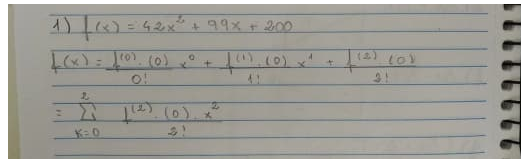 1) f(x) = 42x² + 99x + 200
f(x) = f⁽⁰⁾·(0)/0! x⁰ + f⁽¹⁾·(0)/1! x¹ + f⁽²⁾·(0)/2!
= 2∑K=0 f⁽²⁾·(0)·x²/2!